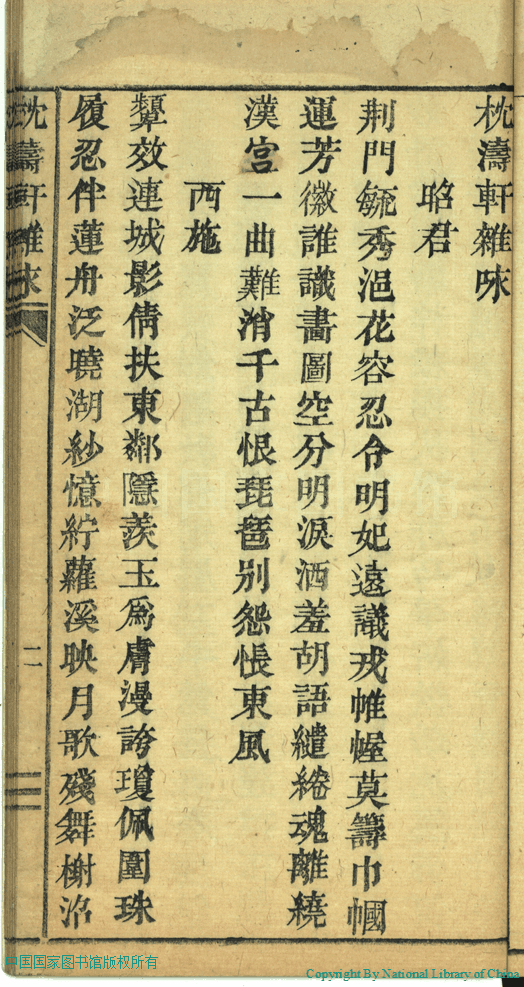 枕濤軒雜咏
昭君
荆門毓秀浥花容忍令明妃遠議戎帷幄莫籌巾幗
運芳徽誰識畵圖空分明淚洒羞胡語繾綣魂離繞
漢宮一曲難消千古恨琵琶别怨悵東風
西施
顰效連城影倩扶東鄰隱羨玉爲膚漫誇瓊佩圍珠
履忍伴蓮舟泛曉湖紗憶紵蘿溪映月歌殘舞榭沿
枕濤軒雜咏
二
中国国家图书馆版权所有
Copyright By National Library of China